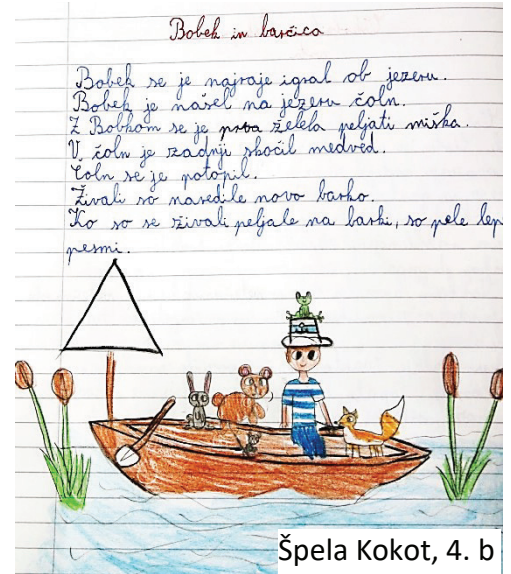 Bobek in barčica
Bobek se je najraje igral ob jezeru.
Bobek je našel na jezeru čoln.
Z Bobkom se je prva želela peljati miška.
V čoln je zadnji skočil medved.
Čoln se je potopil.
Živali so naredile novo barko.
Ko so se živali peljale na barki, so pele lep
pesmi.
Špela Kokot, 4. b